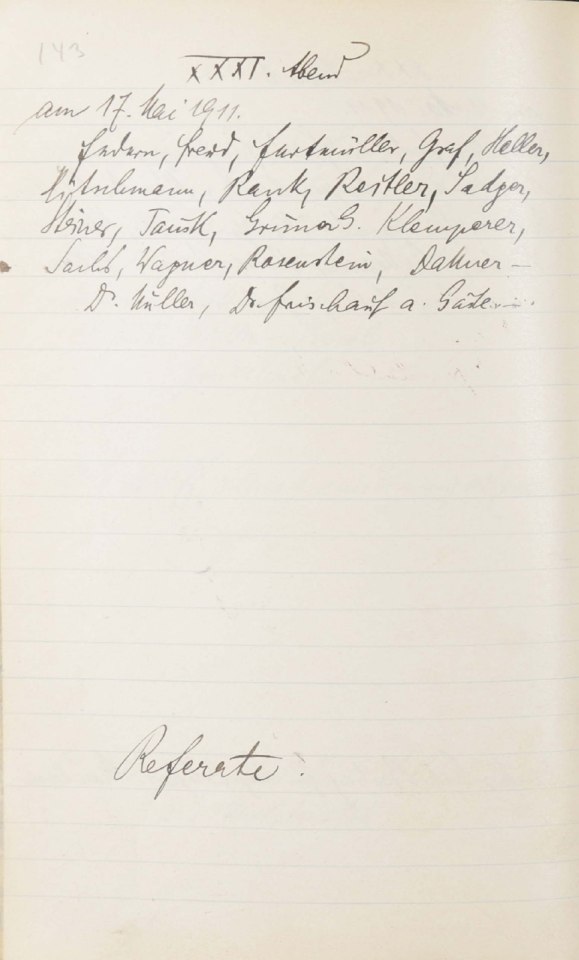 143
XXXI. Abend
am 17. Mai 1911.
Federn, Freud, Furtmüller, Graf, Heller,
Hitschmann, Rank, Reitler, Sadger,
Steiner, Tausk, Grüner G. Klemperer,
Sachs, Wagner, Rosenstein, Dattner –
Dr. Müller, Dr. Frischauf a. Gäste
Referate.